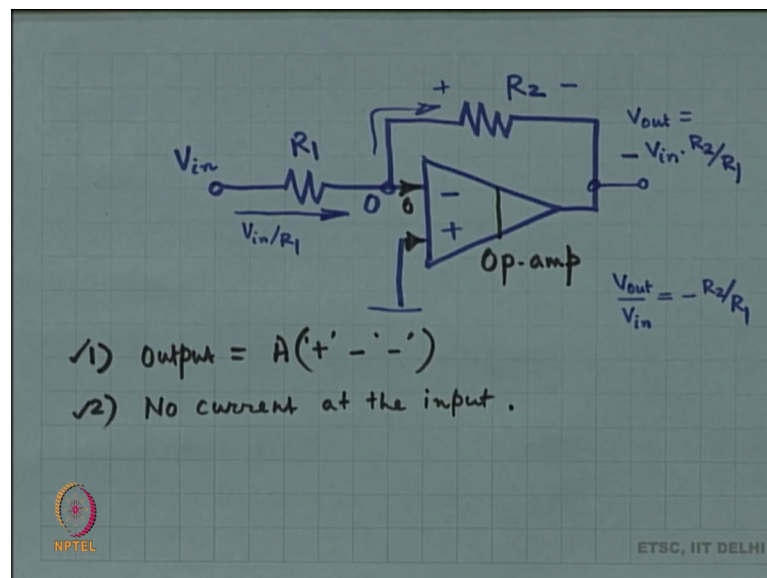 + R2 -
Vout =
- Vin · R2/R1
Vin
R1
Vin/R1
0
0
-
+
Op-amp
Vout/Vin = - R2/R1
✓1) Output = A('+' - '-')
✓2) No current at the input.
NPTEL
ETSC, IIT DELHI